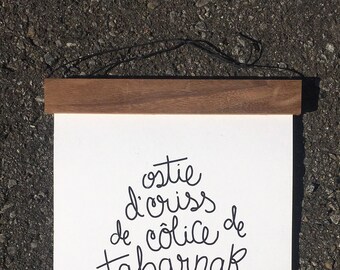 ostie
d'criss
de côlice de
tabarnak